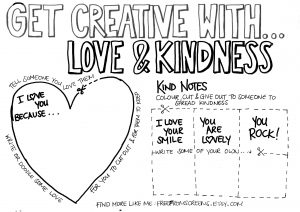 GET CREATIVE WITH...
LOVE & KINDNESS
TELL SOMEONE YOU LOVE THEM
I LOVE
YOU
BECAUSE...
WRITE OR DOODLE SOME LOVE
FOR YOU TO CUT OUT & FOR THEM TO KEEP
KIND NOTES
COLOUR, CUT & GIVE OUT TO SOMEONE TO
SPREAD KINDNESS
I LOVE
YOUR
SMILE
YOU
ARE
LOVELY
YOU
ROCK!
WRITE SOME OF YOUR OWN...
FIND MORE LIKE ME: FREEFROMSCREENS.ETSY.COM